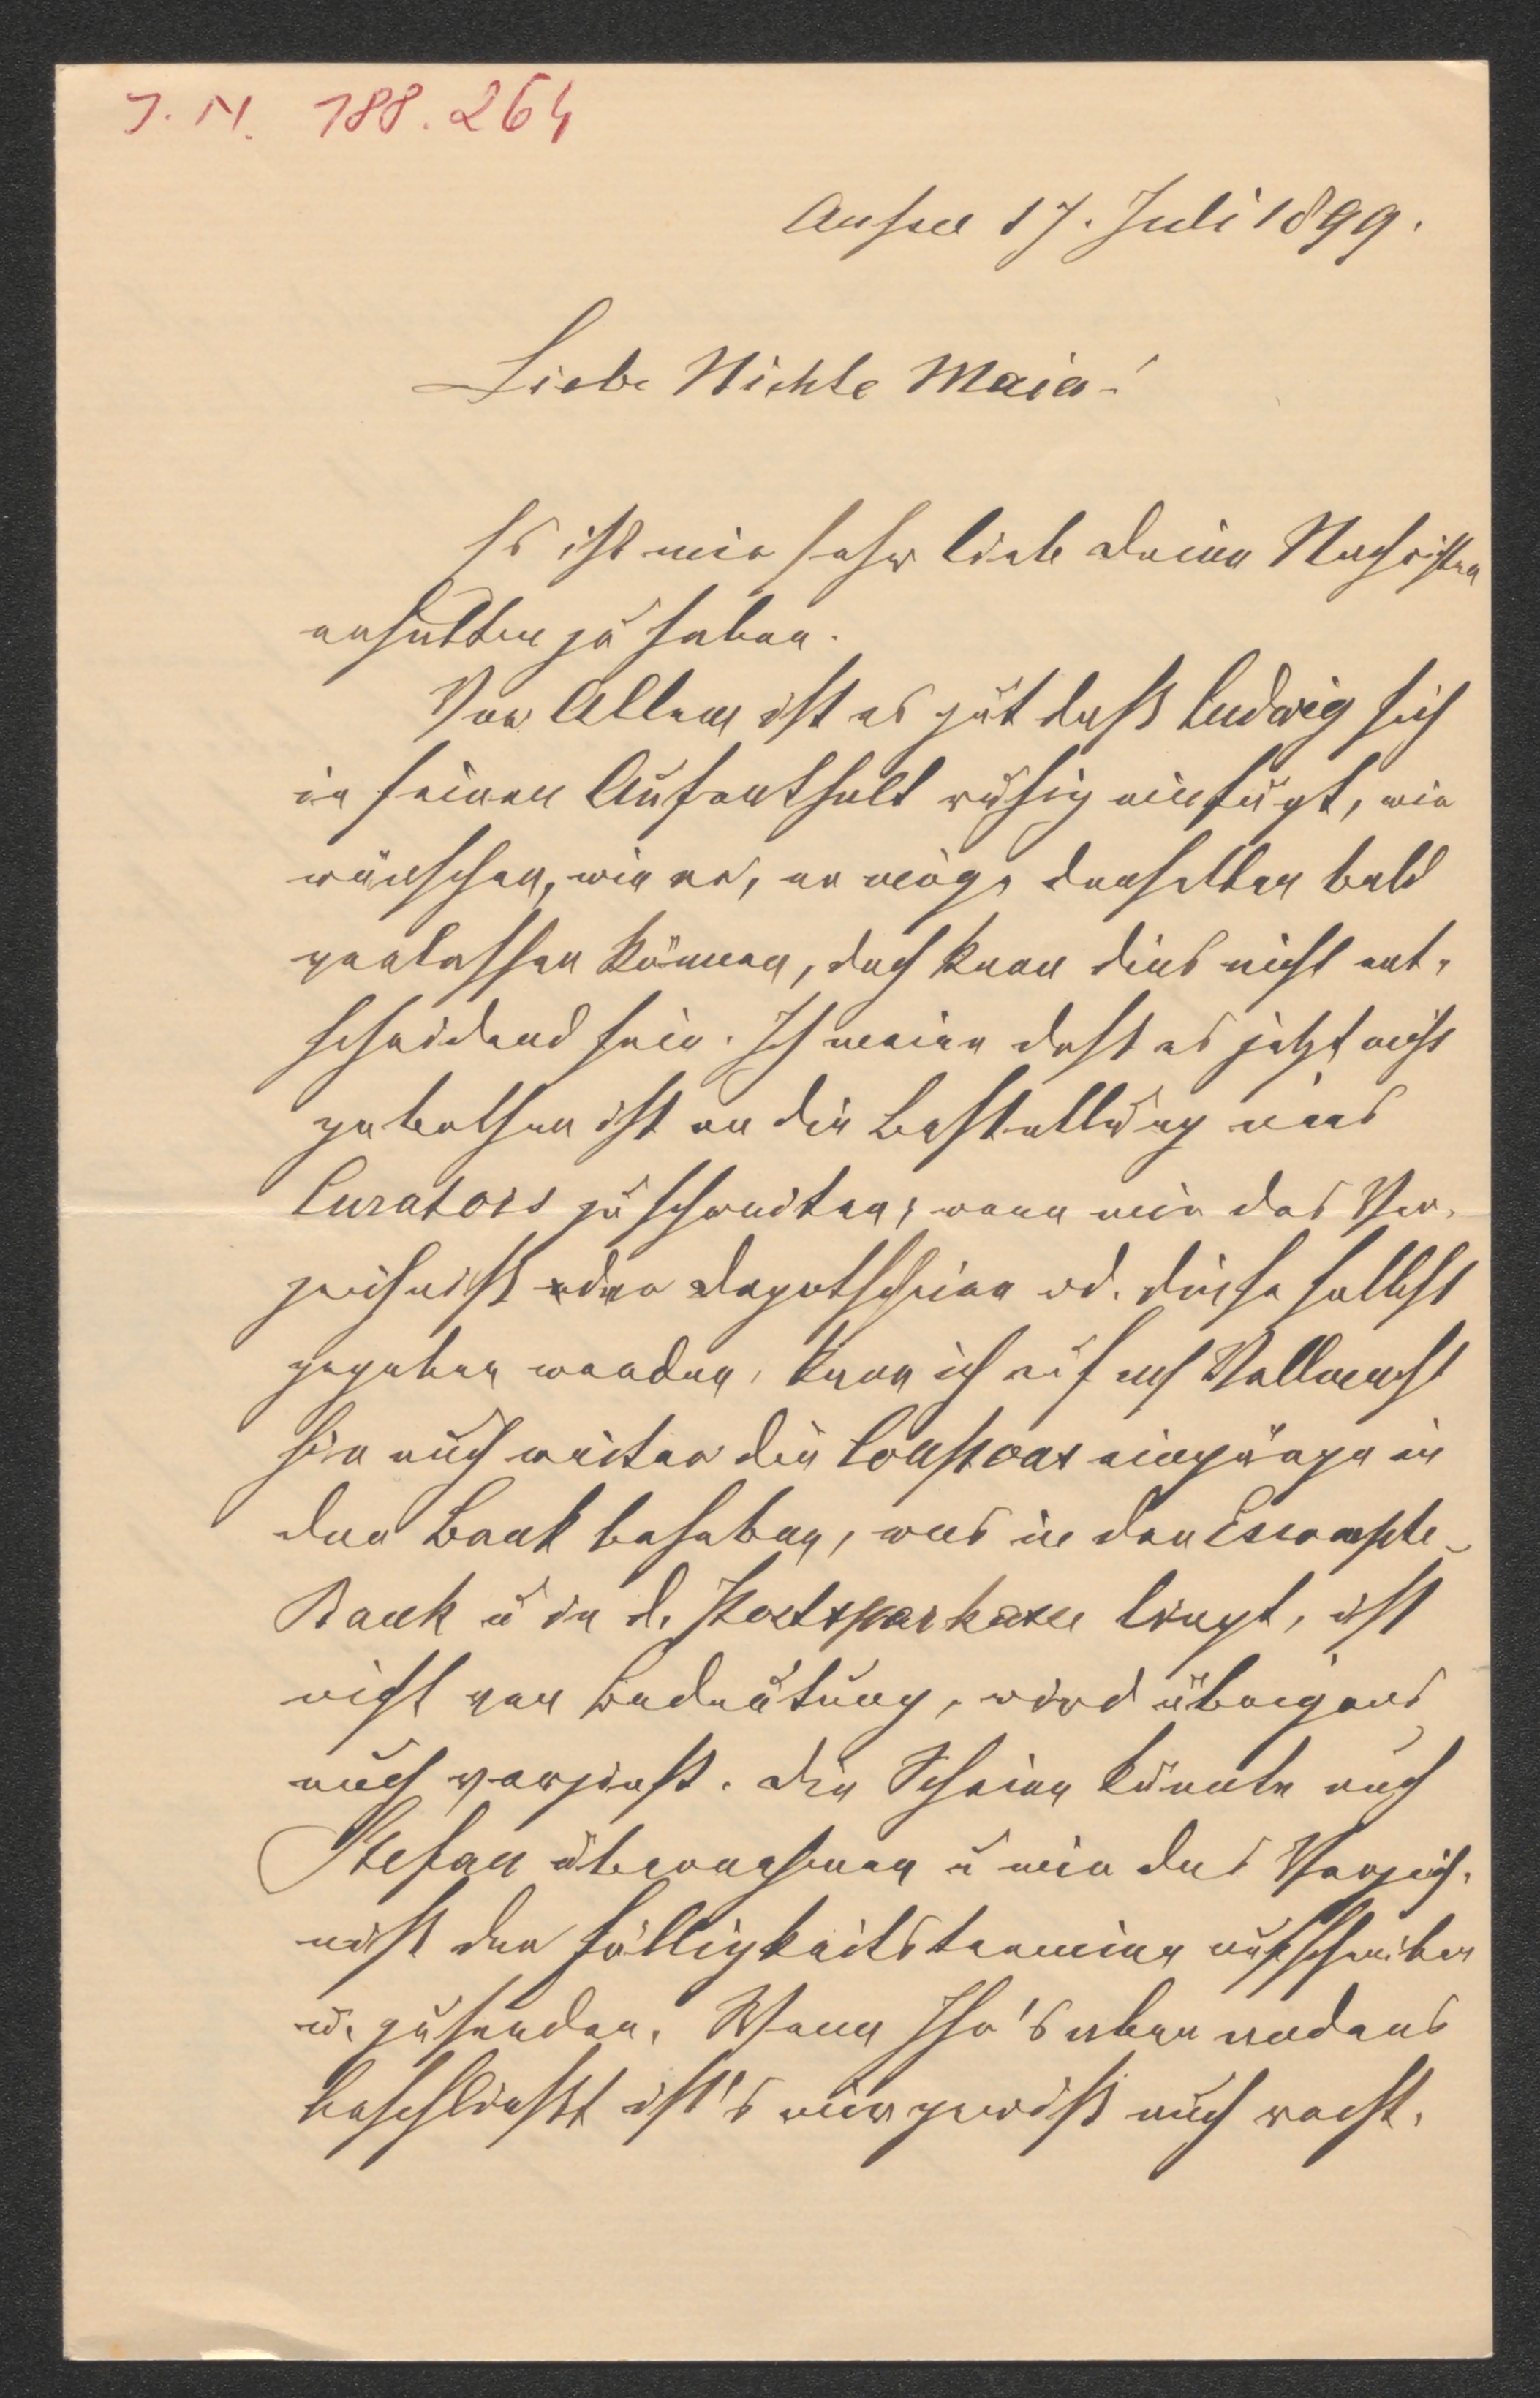 J. N. 188.264
Aussee 17. Juli 1899.
Liebe Nichte Maia!
Es ist mir sehr lieb Deine Nachrichten
erhalten zu haben.
Vor Allem ist es gut daß Ludwig sich
in seinen Aufenthalt ruhig einfügt, wir
wünschen, wie er, er möge denselben bald
verlassen können, doch kann dies nicht ent-
scheidend sein. Ich meine daß es jetzt nicht
gebothen ist an die Bestellung eines
Curators zu schreiten; wenn mir das Ver-
zeichniß der Depotscheine od. diese selbst
gegeben werden, kann ich auf Vollmacht
hin auch weiter die eingänge in
der Bank beheben, was in der Escompte-
Bank u in d. Postsparkasse liegt, ist
nicht von Bedeutung, wird übrigens
auch verzinst. Die Scheine könnte auch
Stefan übernehmen u mir das Verzeich-
niß der Fälligkeitstermine aufschreiben
u. zusenden. Wenn Ihr's aber anders
beschließt ist's mir gewiß auch recht.